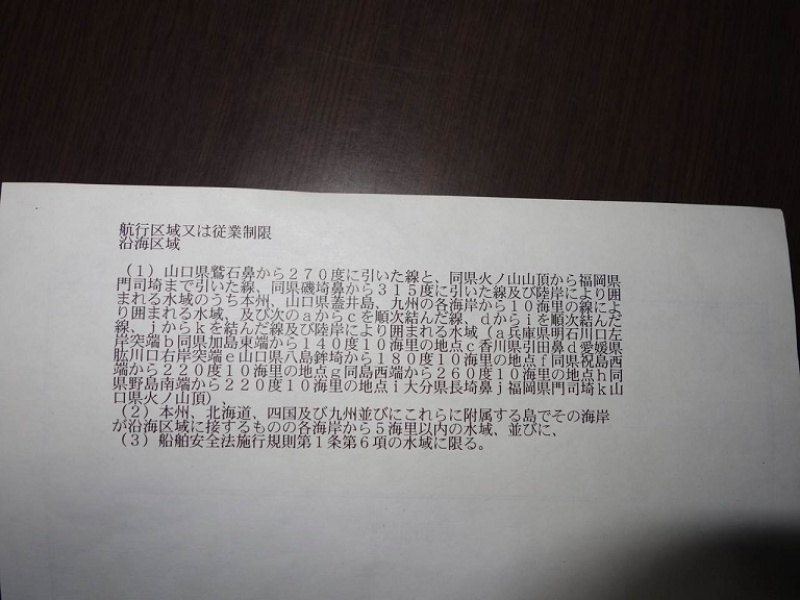 航行区域又は従業制限
沿海区域
(1)山口県鷲石鼻から270度に引いた線と、同県火ノ山山頂から福岡県
門司埼まで引いた線、同県磯埼鼻から315度に引いた線及び陸岸により囲
まれる水域のうち本州、山口県蓋井島、九州の各海岸から10海里の線によ
り囲まれる水域、及び次のaからcを順次結んだ線、dからiを順次結んだ
線、jからkを結んだ線及び陸岸により囲まれる水域(a兵庫県明石川口左
岸突端b同県加島東端から140度10海里の地点c香川県引田鼻d愛媛県
肱川口右岸突端e山口県八島鉾埼から180度10海里の地点f同県祝島西
端から220度10海里の地点g同島西端から260度10海里の地点h同
県野島南端から220度10海里の地点i大分県長埼鼻j福岡県門司埼k山
口県火ノ山頂)、
(2)本州、北海道、四国及び九州並びにこれらに附属する島でその海岸
が沿海区域に接するものの各海岸から5海里以内の水域、並びに、
(3)船舶安全法施行規則第1条第6項の水域に限る。